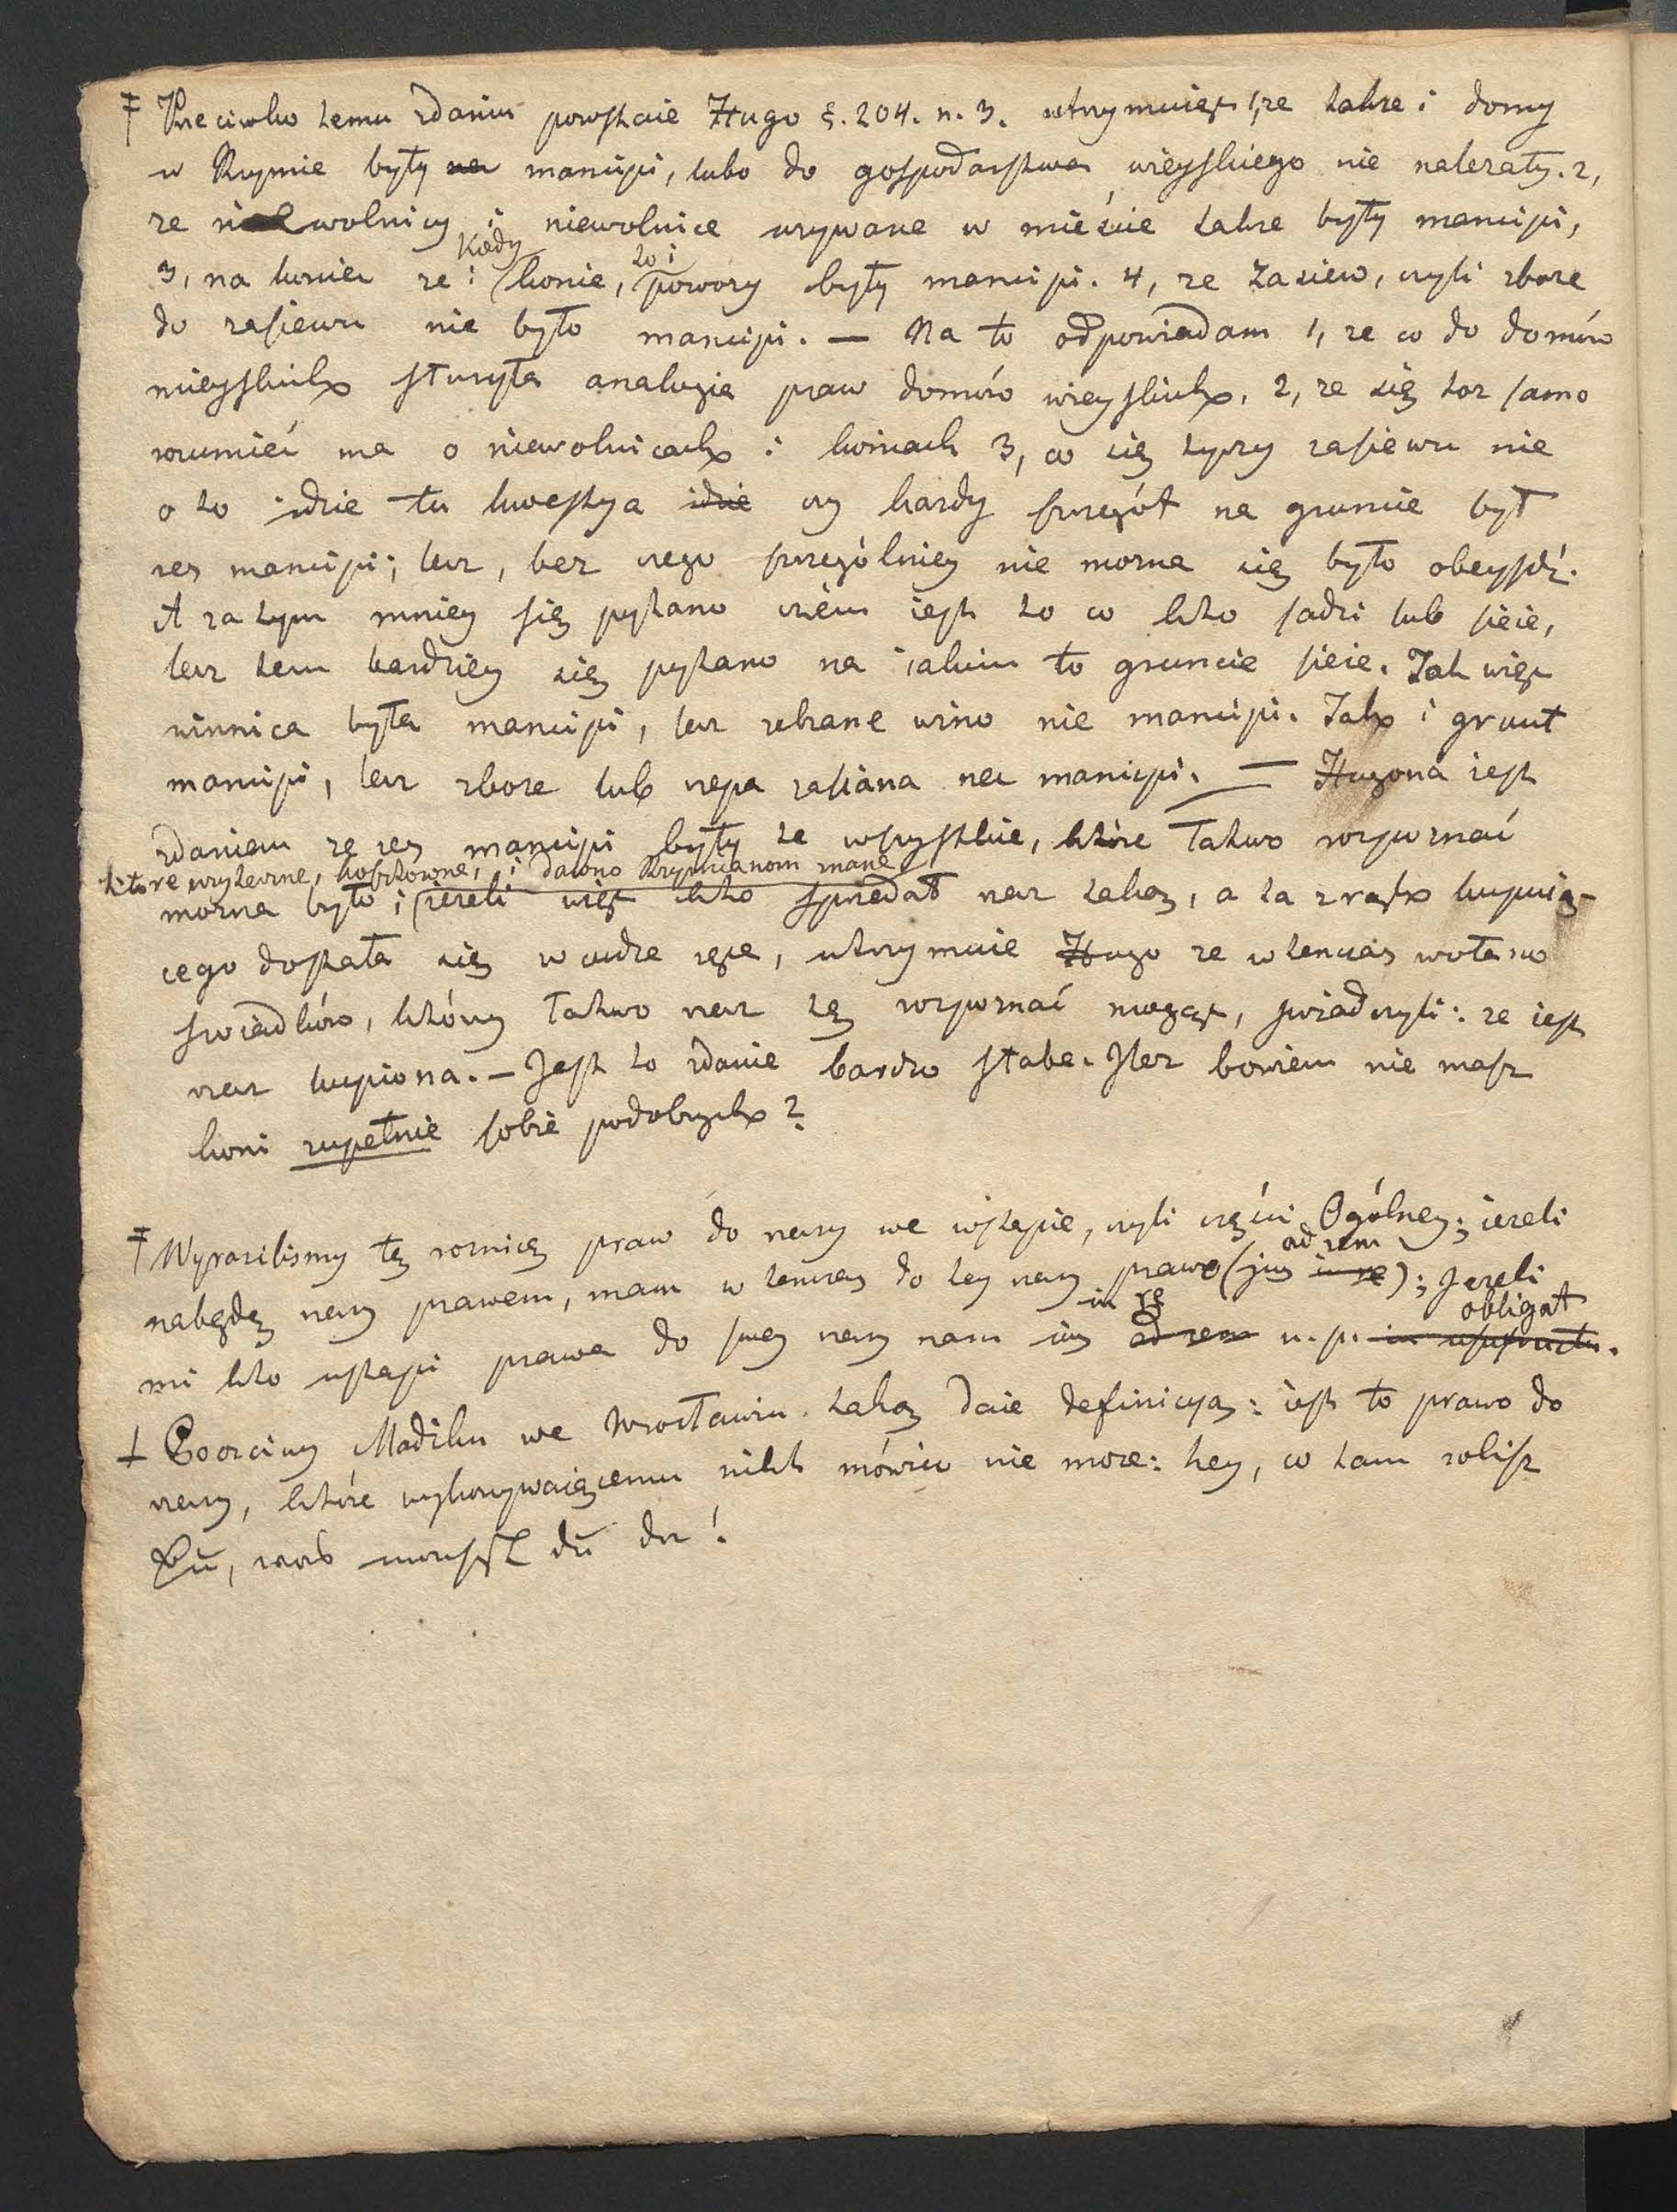 ‡ Przeciwko temu zdaniu powstaie Hugo §. 204. n. 3. utrzymuiąc 1, ze takze i domy
w Rzymie były nec mancipi, lubo do gospodarstwa wieyskiego nie nalezały. 2,
ze niewolnicy i niewolnice uzywane w mieście takze były mancipi,
3, na koniec ze i kiedy konie, to i powozy były mancipi. 4, ze zasiew, czyli zboze
do zasiewu nie było mancipi. — Na to odpowiadam 1, ze co do domów
mieyskich słuzyła analogia praw domów wieyskich, 2, ze się toz samo
rozumieć ma o niewolnicach i koniach 3, co się tyczy zasiewu nie
o to idzie tu kwestya idzie czy kazdy szczegół na gruncie był
res mancipi; lecz, bez czego szczególniey nie mozna się było obeyśdź.
A zatym mniey się pytano czém iest to co kto sadzi lub sieie,
lecz tem bardziey się pytano na iakim to gruncie sieie. Tak więc
winnica była mancipi, lecz zebrane wino nie mancipi. Tak i grunt
mancipi, lecz zboze lub rzepa zasiana nec mancipi. — Hugona iest
zdaniem ze res mancipi były te wszystkie, które łatwo rozpoznać
które uzyteczne, kosztowne, i dawno Rzymianom znane
mozna było; iezeli więc kto sprzedał rzecz taką, a ta z rąk kupuią-
cego dostała się w cudze ręce, utrzymuie Hugo ze wtenczas wołano
swiadków, którzy łatwo rzecz tę rozpoznać mogąc, swiadczyli: ze iest
rzecz kupiona. — Jest to zdanie bardzo słabe. Ilez bowiem nie masz
koni zupełnie sobie podobnych?
‡ Wyrazilismy tę roznicę praw do rzeczy we wstępie, czyli części Ogólney; iezeli
nabędę rzeczy prawem, mam wtenczas do tey rzeczy prawo (jus in re ad rem); Jezeli
mi kto ustąpi prawa do swey rzeczy mam ius ad rem in re n. p. in usufructu obligat.
† Poczciwy Madihn we Wrocławiu taką daie definicyą: iest to prawo do
rzeczy, które wykonywaiącemu nikt mówić nie moze: hey, co tam robisz
Du, was machst du da!